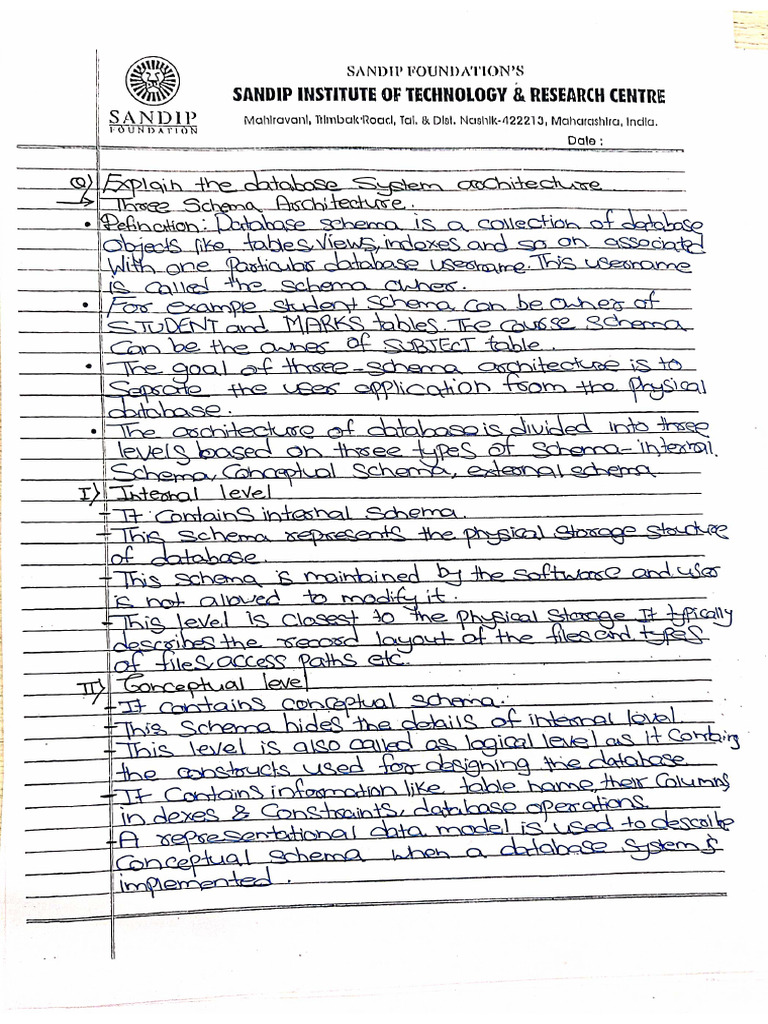 SANDIP FOUNDATION'S
SANDIP INSTITUTE OF TECHNOLOGY & RESEARCH CENTRE
SANDIP
FOUNDATION
Mahiravani, Trimbak Road, Tal. & Dist. Nashik-422213, Maharashtra, India.
Date :
Q) Explain the database System architecture
→ Three Schema Architecture.
• Defination: Database schema is a collection of database
Objects like, tables, Views, indexes and so on associated
With one Particular database username. This username
is called the schema owner.
• For example student schema can be owner of
STUDENT and MARKS tables. The course schema
Can be the owner of SUBJECT table.
• The goal of three-schema architecture is to
Seprate the user application from the physical
database.
• The architecture of database is divided into three
levels based on three types of schema - internal
Schema, Conceptual Schema, external schema
I) Internal level
- It Contains internal Schema.
- This Schema represents the physical Storage structure
of database.
- This schema is maintained by the software and user
is not allowed to modify it.
- This level is closest to the physical Storage It typically
describes the record layout of the files and types
of files, access paths etc.
II) Conceptual level
- It contains conceptual schema.
- This Schema hides the details of internal level
- This level is also called as logical level as it Contains
the constructs used for designing the database
- It Contains information like table name, their Columns,
indexes & Constraints, database operations.
- A representational data model is used to describe
Conceptual schema when a database System is
implemented.